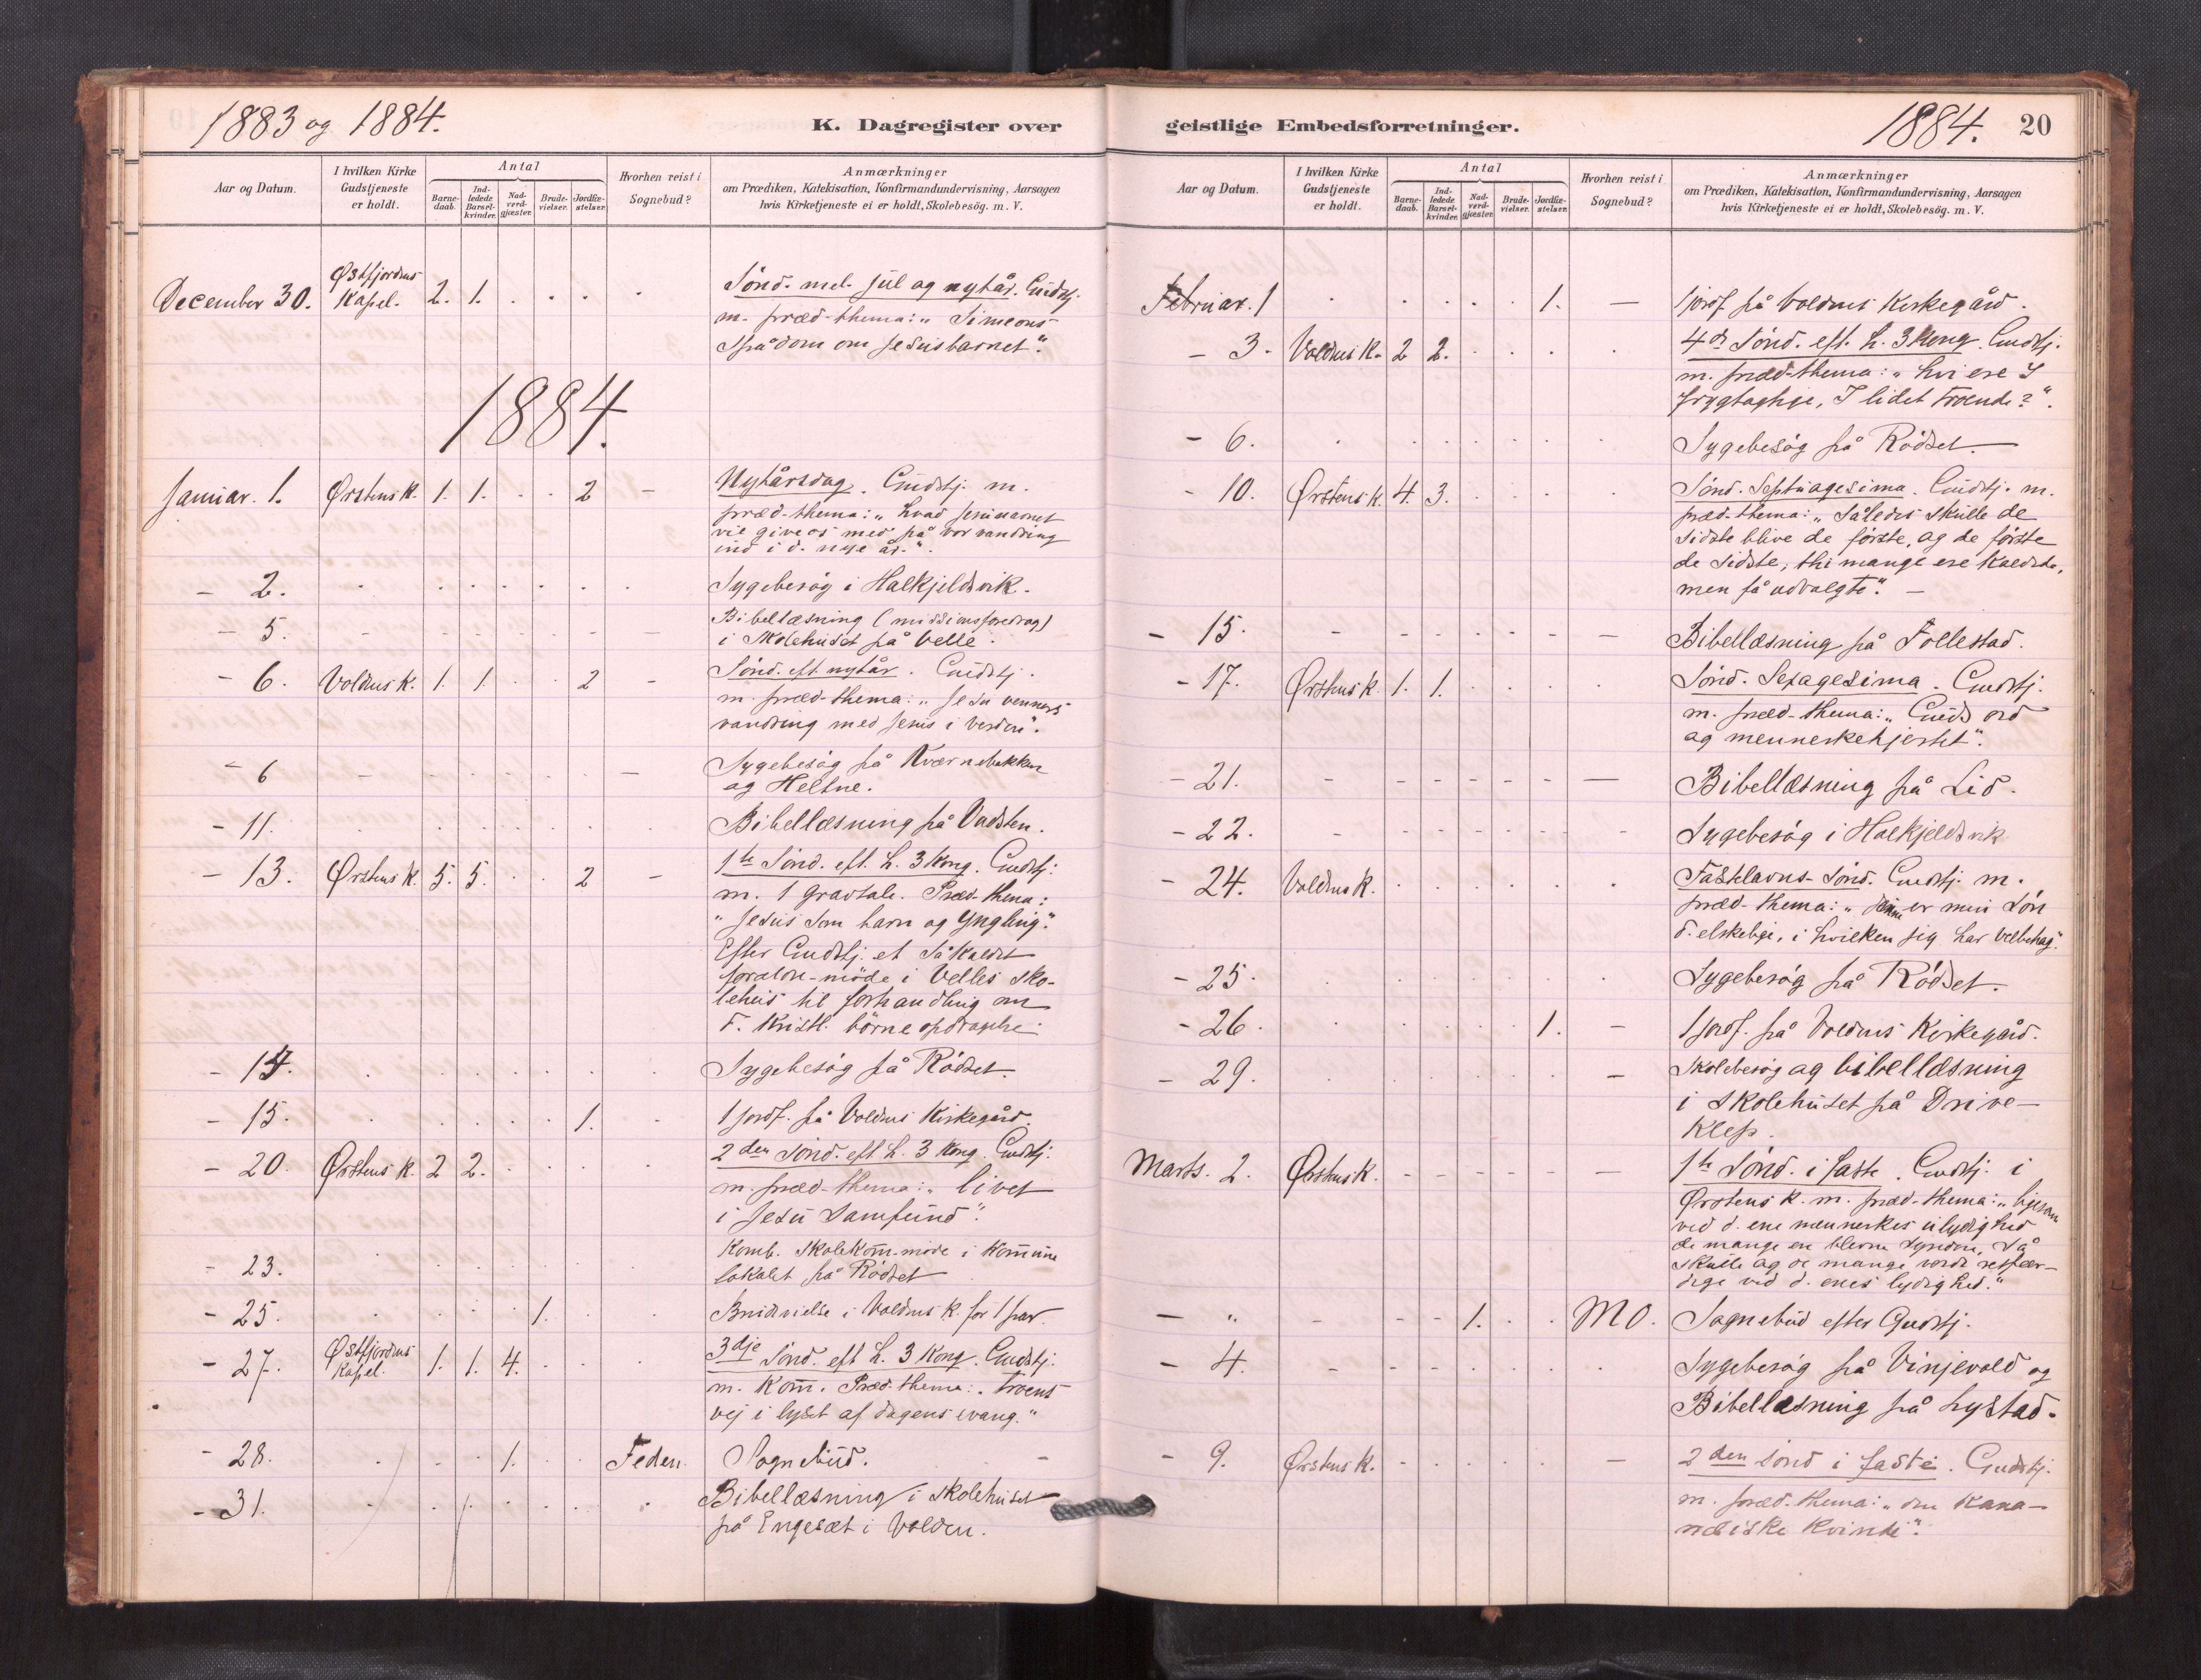 1883 og 1884.
K. Dagregister over
Aar og Datum.
I hvilken Kirke Gudstjeneste er holdt.
Antal
Barne-daab.
Ind-ledede Barsel-kvinder.
Nad-verd-gjæster.
Brude-vielser.
Jordfæ-stelser.
Hvorhen reist i Sognebud?
Anmærkninger
om Prædiken, Katekisation, Konfirmandundervisning, Aarsagen
hvis Kirketjeneste ei er holdt, Skolebesög. m. V.
December 30. Østfjordens Kapel. 2. 1. Sönd. mel. jul og nytår. Gudstj.
m. præd-thema: "Simeons
spådom om Jesusbarnet".
1884.
Januar. 1. Ørstens K. 1. 1. 2 Nytårsdag. Gudstj. m.
præd-thema: "hvad Jesunavnet
vil give os med på vor vandring
ind i d. nye år."
- 2. Sygebesög i Halkjeldsvik.
- 5. Bibellæsning (missionsforedrag)
i Skolehuset på Velle.
- 6. Voldens K. 1. 1. 2 Sönd. eft. nytår. Gudstj.
m. præd-thema: "Jesu venners
vandring med Jesus i verden".
- 6 Sygebesög på Kværnebakken
og Heltne.
- 11. Bibellæsning på Vadsten.
- 13. Ørstens K. 5. 5. 2 1ste Sönd. eft. h. 3 Kong. Gudstj.
m. 1 gravtale. Præd-thema:
"Jesus som barn og yngling".
Efter Gudstj. et såkaldet
foræld­re-möde i Velles Sko-
lehus til forhandling om
d. kristl. börneopdragelse.
- 14. Sygebesög på Rödset.
- 15. 1. 1 jordf. på Voldens Kirkegård.
- 20. Ørstens K. 2 2. 2den Sönd. eft. h. 3 Kong. Gudstj.
m. præd-thema: "livet
i Jesu Samfund".
- 23. Komb. Skolekom-möde i Kommune
lokalet på Rödset
- 25. 1. Brudvielse i Voldens K. for 1 par.
- 27. Østfjordens Kapel. 1. 1. 4. 3dje Sönd. eft. h. 3 Kong. Gudstj.
m. Kom. Præd-thema: "troens
vej i lyset af dagens evang."
- 28. 1. Feden. Sognebud.
- 31. Bibellæsning i Skolehuset
på Engeset i Volden.
geistlige Embedsforretninger.
1884. 20
Aar og Datum.
I hvilken Kirke Gudstjeneste er holdt.
Antal
Barne-daab.
Ind-ledede Barsel-kvinder.
Nad-verd-gjæster.
Brude-vielser.
Jordfæ-stelser.
Hvorhen reist i Sognebud?
Anmærkninger
om Prædiken, Katekisation, Konfirmandundervisning, Aarsagen
hvis Kirketjeneste ei er holdt, Skolebesög. m. V.
Februar. 1 1. 1 jordf på Voldens Kirkegård.
- 3. Voldens K. 2 2. 4de Sönd. eft. h. 3 Kong. Gudstj.
m. præd-thema: "hvi ere I
frygtagtige, I lidet troende?".
- 6. Sygebesög på Rödset.
- 10. Ørstens K. 4. 3. Sönd. Septuagesima. Gudstj. m.
præd-thema: "således skulle de
sidste blive de förste, og de förste
de sidste; thi mange ere kaldede,
men få udvalgte".
- 15. Bibellæsning på Follestad.
- 17. Ørstens K. 1. 1. Sönd. Sexagesima. Gudstj.
m. præd-thema: "Guds ord
og menneskehjertet".
- 21. Bibellæsning på Lid.
- 22. Sygebesög i Halkjeldsvik
- 24. Voldens K. Fastelavns-Sönd. Gudstj. m.
præd-thema: "denne er min Sön
d. elskelige, i hvilken jeg har velbehag".
- 25. Sygebesög på Rödset.
- 26. 1. 1 jordf. på Voldens Kirkegård.
- 29. Skolebesög og bibellæsning
i Skolehuset på Drive-
klep.
Marts. 2. Ørstens K. 1ste Sönd. i faste. Gudstj. i
Ørstens K. m. præd-thema: "ligesom
ved d. ene menneskes ulydighed
de mange ere blevne syndere, så
skulle og de mange vorde retfær-
dige ved d. enes lydighed."
- " 1. Mo. Sognebud efter Gudstj.
- 4. Sygebesög på Vinjevold og
Bibellæsning på Lystad.
- 9. Ørstens K. 2den Sönd i faste. Gudstj.
m. præd-thema: "den kana-
næiske kvinde".